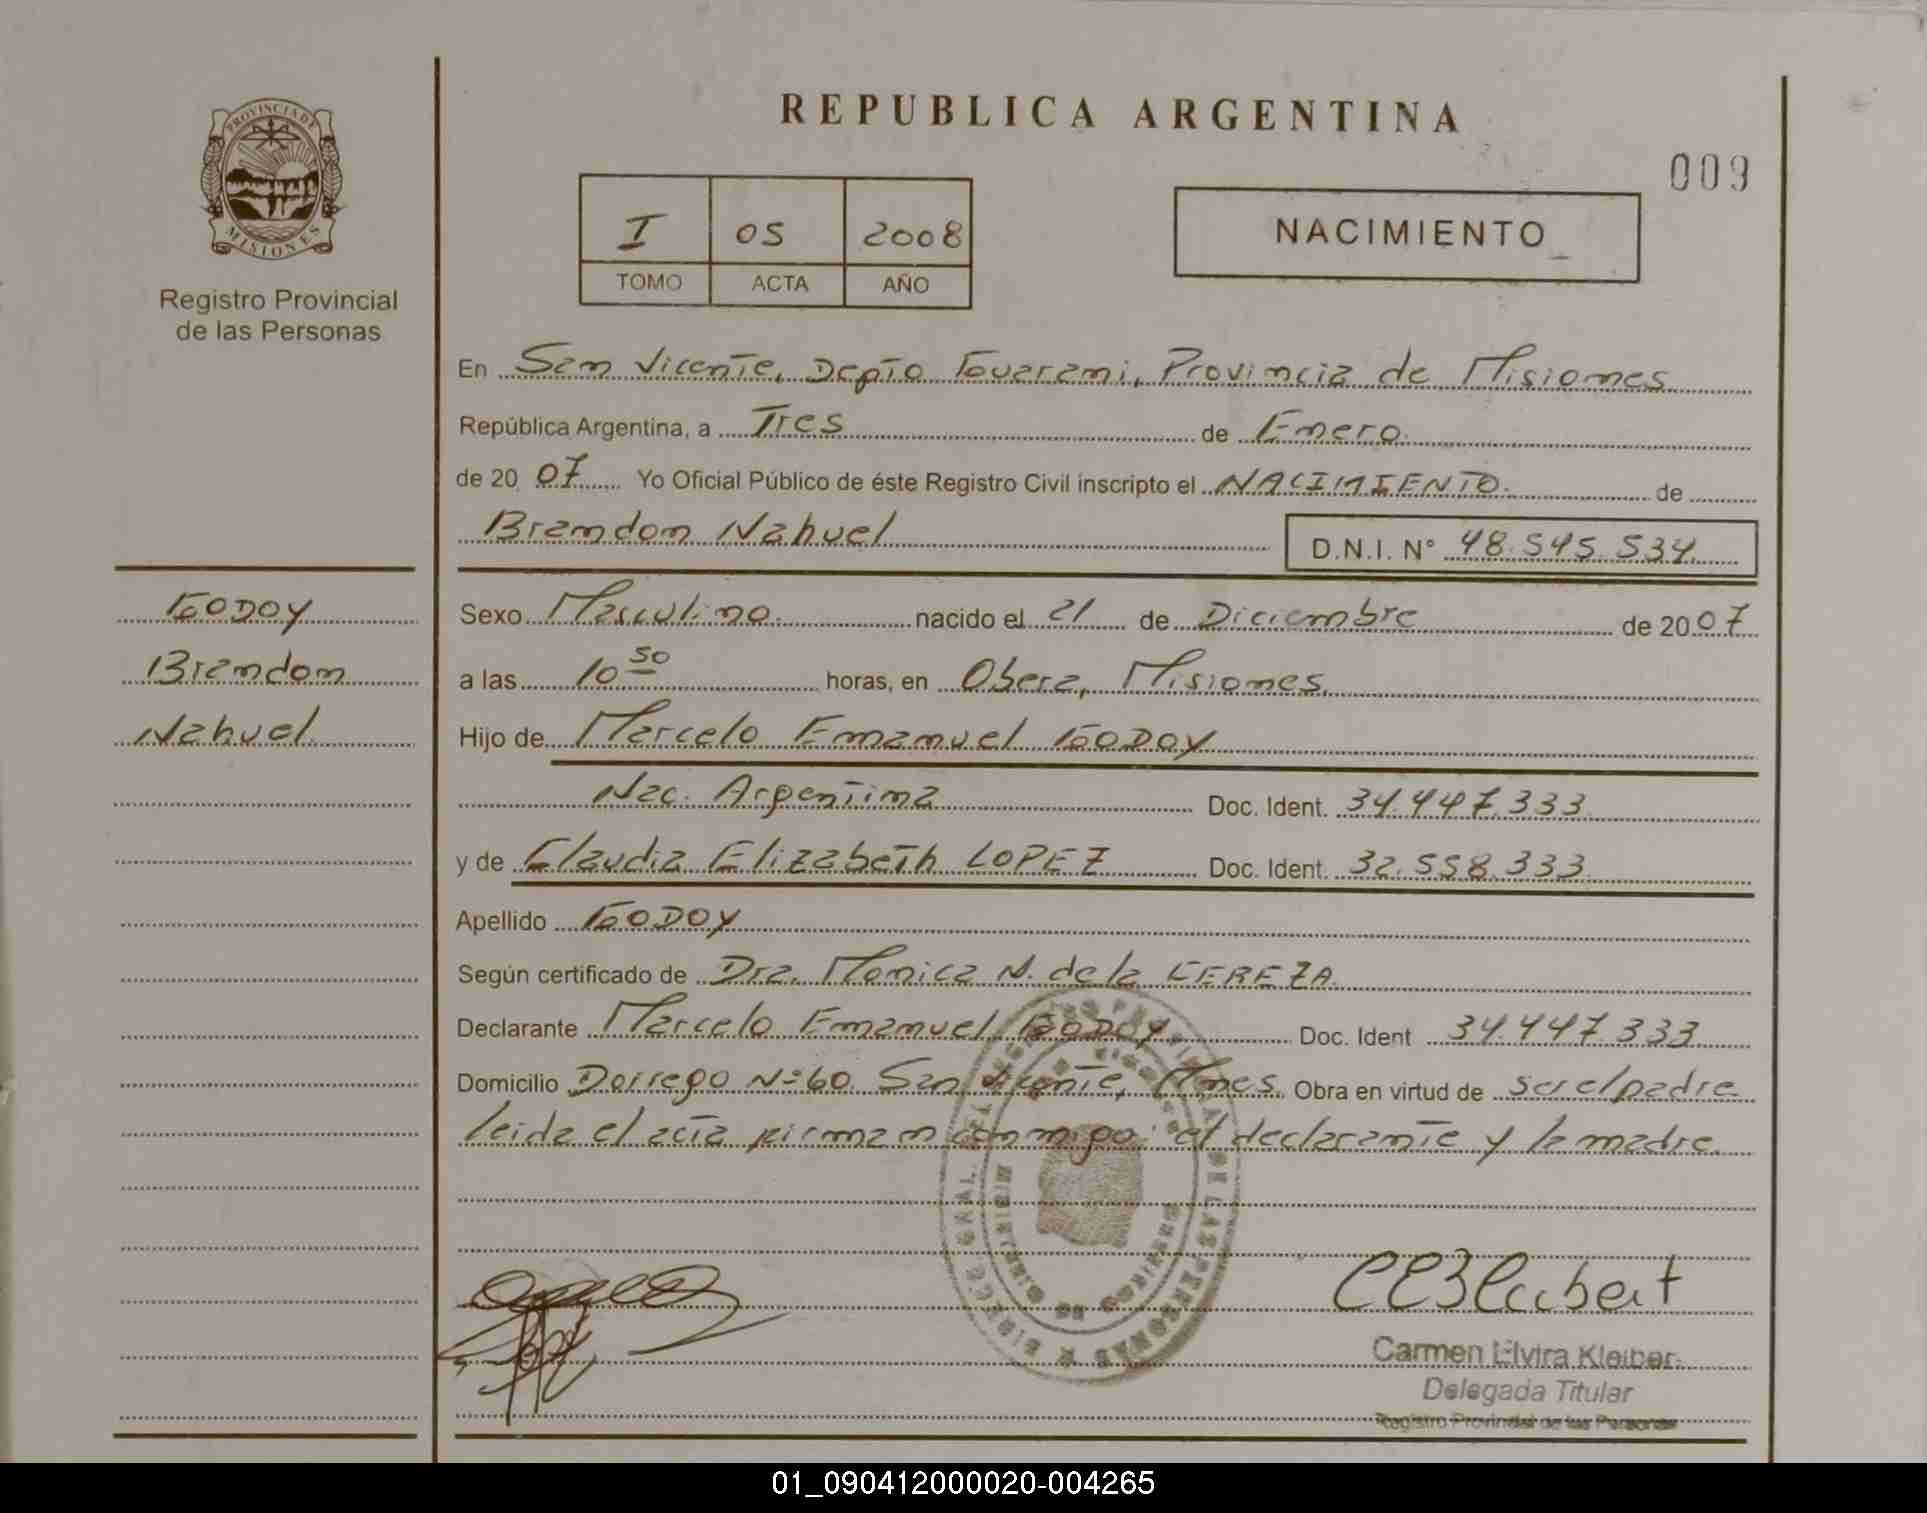 REPUBLICA ARGENTINA
009
PROVINCIA DE
MISIONES
Registro Provincial
de las Personas
I 05 2008
TOMO ACTA AÑO
NACIMIENTO
En San Vicente, Depto Guarani, Provincia de Misiones
República Argentina, a Tres de Enero.
de 20 07 Yo Oficial Público de éste Registro Civil inscripto el NACIMIENTO. de
Brandon Nahuel D.N.I. N° 48.545.534
GODOY
Brandon
Nahuel
Sexo Masculino. nacido el 21 de Diciembre de 2007
a las 10 50 horas, en Obera, Misiones.
Hijo de Marcelo Emanuel GODOY
Nac. Argentina Doc. Ident. 34.447.333
y de Claudia Elizabeth LOPEZ Doc. Ident. 32.558.333
Apellido GODOY
Según certificado de Dra. Monica N. de la CEREZA.
Declarante Marcelo Emanuel GODOY Doc. Ident 34.447.333
Domicilio Dorrego Nº 60 San Vicente, Mnes. Obra en virtud de ser el padre
leida el acta firman conmigo: el declarante y la madre.
Carmen Elvira Kleiber
Delegada Titular
Registro Provincial de las Personas
01_090412000020-004265